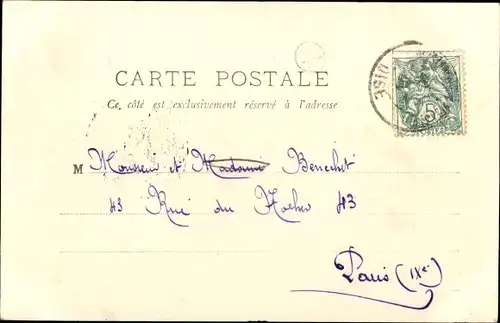 CARTE POSTALE
Ce côté est exclusivement réservé à l'adresse
M Monsieur et Madame Benechet
43 Rue du Rocher 43
Paris (IXe)
OISE
5